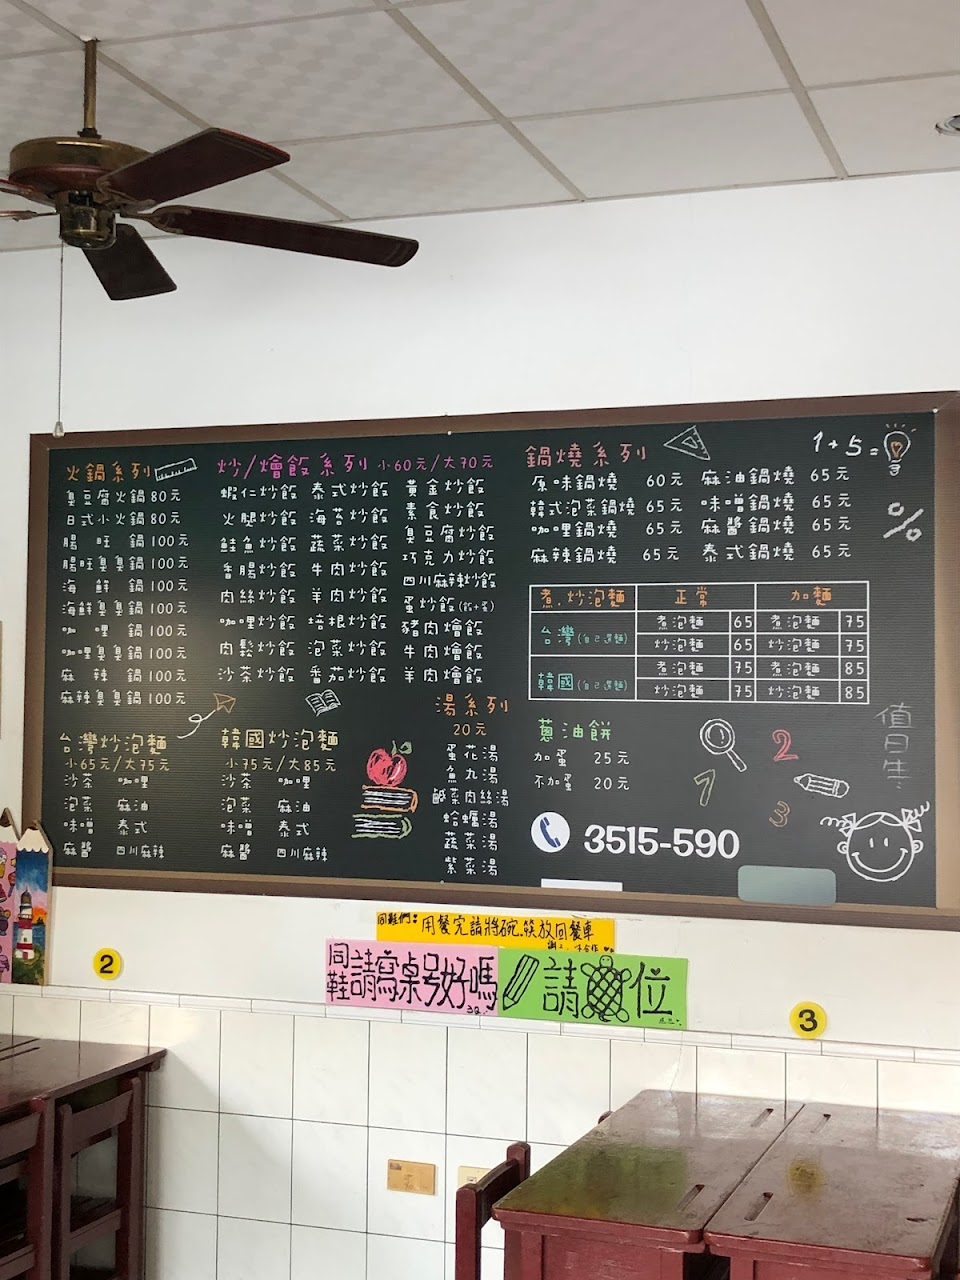 火鍋系列
臭豆腐火鍋 80元
日式小火鍋 80元
腸旺鍋 100元
腸旺臭臭鍋 100元
海鮮鍋 100元
海鮮臭臭鍋 100元
咖哩鍋 100元
咖哩臭臭鍋 100元
麻辣鍋 100元
麻辣臭臭鍋 100元
炒/燴飯系列 小60元/大70元
蝦仁炒飯 泰式炒飯 黃金炒飯
火腿炒飯 海苔炒飯 素食炒飯
鮭魚炒飯 蔬菜炒飯 臭豆腐炒飯
香腸炒飯 牛肉炒飯 巧克力炒飯
肉絲炒飯 羊肉炒飯 四川麻辣炒飯
咖哩炒飯 培根炒飯 蛋炒飯
肉鬆炒飯 泡菜炒飯 豬肉燴飯
沙茶炒飯 番茄炒飯 牛肉燴飯
羊肉燴飯
鍋燒系列
原味鍋燒 60元 麻油鍋燒 65元
韓式泡菜鍋燒 65元 味噌鍋燒 65元
咖哩鍋燒 65元 麻醬鍋燒 65元
麻辣鍋燒 65元 泰式鍋燒 65元
1+5=
%
煮.炒泡麵 正常 加麵
台灣(自己選麵) 煮泡麵 65 煮泡麵 75
炒泡麵 65 炒泡麵 75
韓國(自己選麵) 煮泡麵 75 煮泡麵 85
炒泡麵 75 炒泡麵 85
台灣炒泡麵
小65元/大75元
沙茶 咖哩
泡菜 麻油
味噌 泰式
麻醬 四川麻辣
韓國炒泡麵
小75元/大85元
沙茶 咖哩
泡菜 麻油
味噌 泰式
麻醬 四川麻辣
湯系列
20元
蛋花湯
魚丸湯
鹹菜肉絲湯
蛤蠣湯
蔬菜湯
紫菜湯
蔥油餅
加蛋 25元
不加蛋 20元
1
2
3
值日生:
3515-590
同鞋們:用餐完請將碗.筷放回餐車
同鞋請寫桌号好嗎
請位
2
3